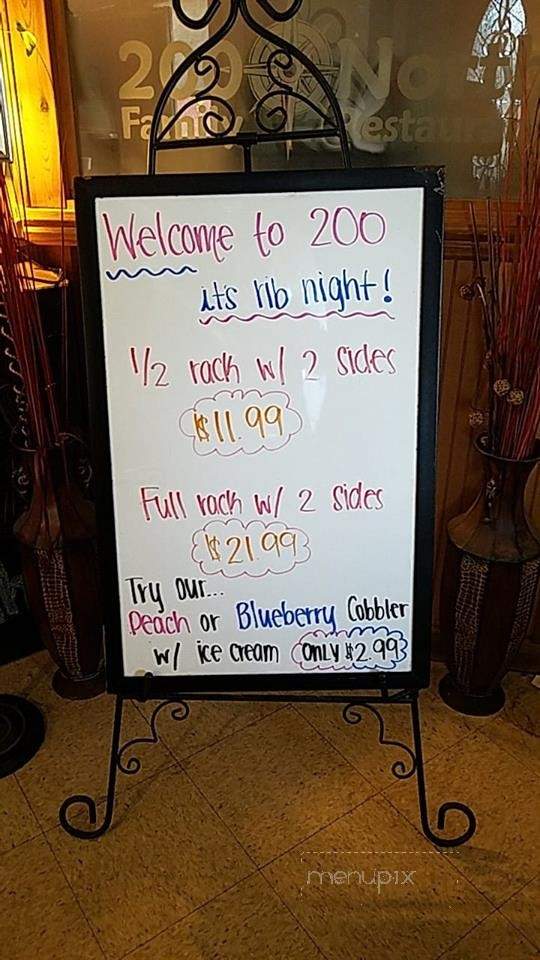 200 No
Family Restau
Welcome to 200
its rib night!
1/2 rack w/ 2 sides
$11.99
Full rack w/ 2 sides
$21.99
Try our...
Peach or Blueberry Cobbler
w/ ice cream only $2.99
menupix